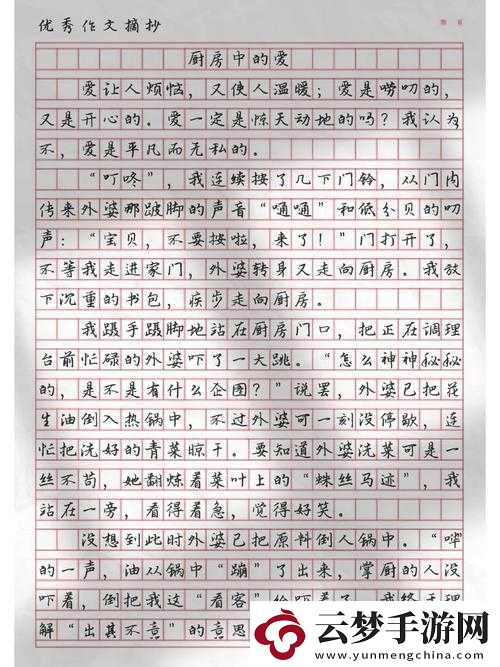 优秀作文摘抄
厨房中的爱
爱让人烦恼，又使人温暖；爱是唠叨的，
又是开心的。爱一定是惊天动地的吗？我认为
不，爱是平凡而无私的。
“叮咚”，我连续按了几下门铃，从门内
传来外婆那跛脚的声音“嗵嗵”和低分贝的叨
声：“宝贝，不要按啦，来了！”门打开了，
不等我走进家门，外婆转身又走向厨房。我放
下沉重的书包，疾步走向厨房。
我蹑手蹑脚地站在厨房门口，把正在调理
台前忙碌的外婆吓了一大跳。“怎么神神秘秘
的，是不是有什么企图？”说罢，外婆已把花
生油倒入热锅中，不过外婆可一刻没停歇，连
忙把洗好的青菜晾干。要知道外婆洗菜可是一
丝不苟，她翻炼着菜叶上的“蛛丝马迹”，我
站在一旁，看得着急，觉得好笑。
没想到此时外婆已把原料倒人锅中。“哗”
的一声，油从锅中“蹦”了出来，掌厨的人没
吓着，倒把我这“看客”给吓着了，我终于理
解“出其不意”的意思
云梦手游网
www.yunmengchina.com